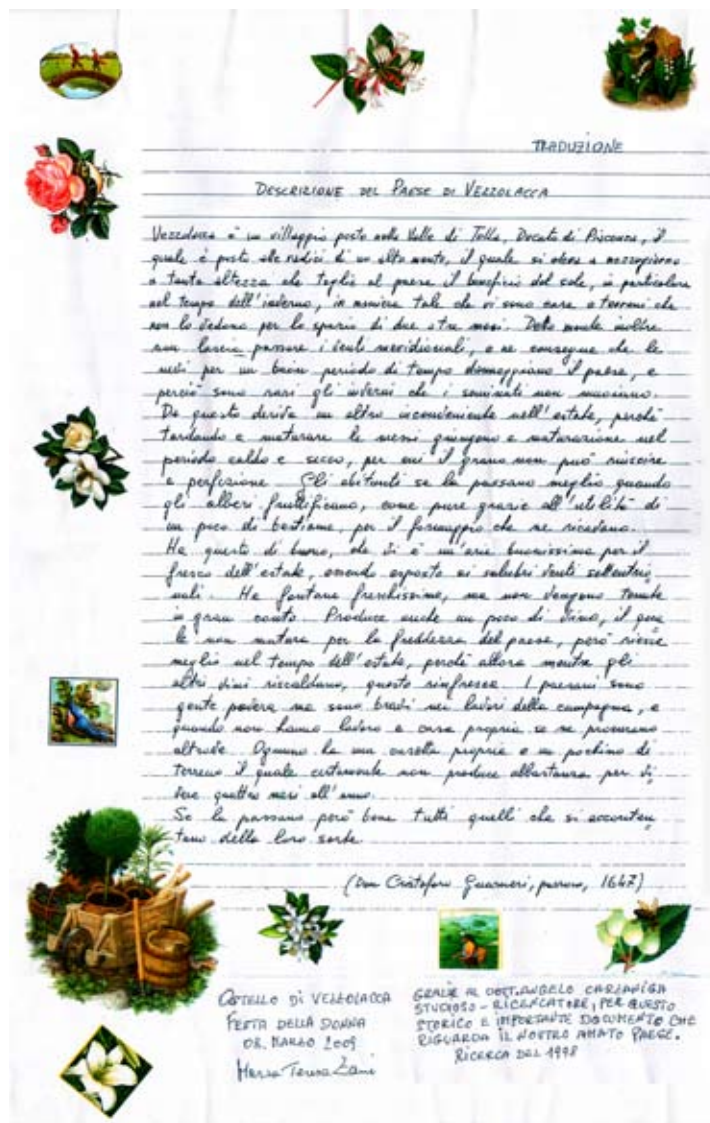 TRADUZIONE
DESCRIZIONE DEL PAESE DI VEZZOLACCA
Vezzolacca è un villaggio posto nella Valle di Tolla, Ducato di Piacenza, il
quale è posto alle radici di un alto monte, il quale si eleva a mezzogiorno
a tanta altezza che toglie al paese il beneficio del sole, in particolare
nel tempo dell'inverno, in maniera tale che vi sono case e terreni che
non lo vedono per lo spazio di due o tre mesi. Detto monte inoltre
non lascia passare i venti meridionali, e ne consegue che le
nevi per un buon periodo di tempo danneggiano il paese, e
perciò sono rari gli inverni che i seminati non muoiano.
Da questo deriva un altro inconveniente nell'estate, perché
tardando a maturare le messi giungono a maturazione nel
periodo caldo e secco, per cui il grano non può riuscire
a perfezione. Gli abitanti se la passano meglio quando
gli alberi fruttificano, come pure grazie all'utilità di
un poco di bestiame, per il formaggio che ne ricavano.
Ha questo di buono, che vi è un'aria buonissima per il
fresco dell'estate, essendo esposto ai salubri venti settentrio
nali. Ha fontane freschissime, ma non vengono tenute
in gran conto. Produce anche un poco di vino, il qua
le non matura per la freddezza del paese, però riesce
meglio nel tempo dell'estate, perché allora mentre gli
altri vini riscaldano, questo rinfresca. I paesani sono
gente povera ma sono bravi nei lavori della campagna, e
quando non hanno lavoro a casa propria se ne procurano
altrove. Ognuno ha una casetta propria e un pochino di
terreno il quale certamente non produce abbastanza per vi
vere quattro mesi all'anno.
Se la passano però bene tutti quelli che si acconten
tano della loro sorte
(Don Cristoforo Guarnieri, parroco, 1647)
OSTELLO DI VEZZOLACCA
FESTA DELLA DONNA
08. MARZO 2009
Maria Teresa Zani
GRAZIE AL DOTT. ANGELO CARZANIGA
STUDIOSO - RICERCATORE, PER QUESTO
STORICO E IMPORTANTE DOCUMENTO CHE
RIGUARDA IL NOSTRO AMATO PAESE.
RICERCA DEL 1998